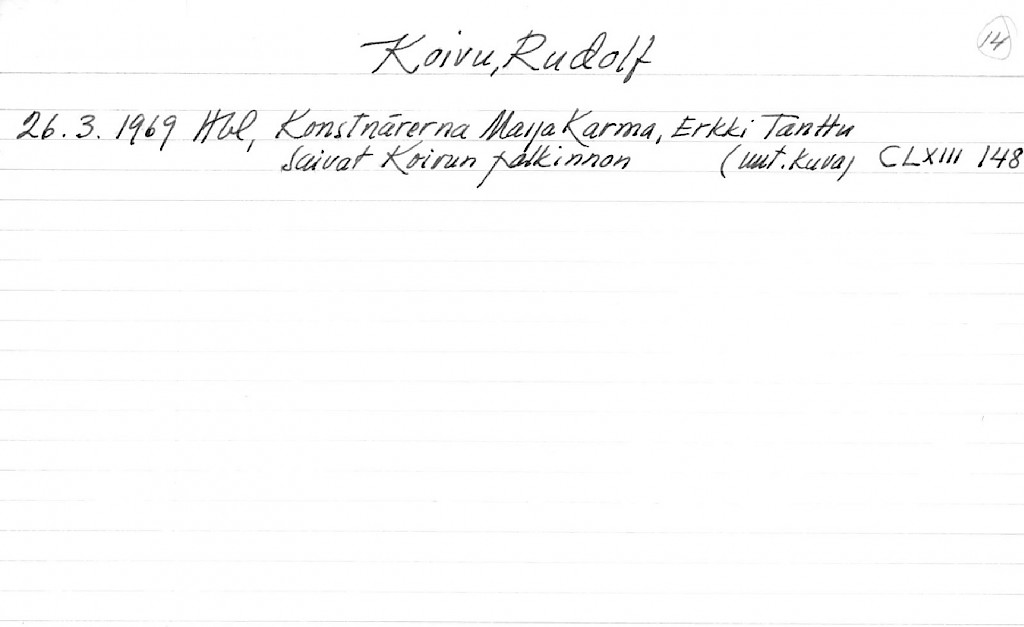 Koivu, Rudolf
14
26.3.1969 Hbl, Konstnärerna Maija Karma, Erkki Tanttu
saivat Koivun palkinnon (uut.kuva) CLXIII 148